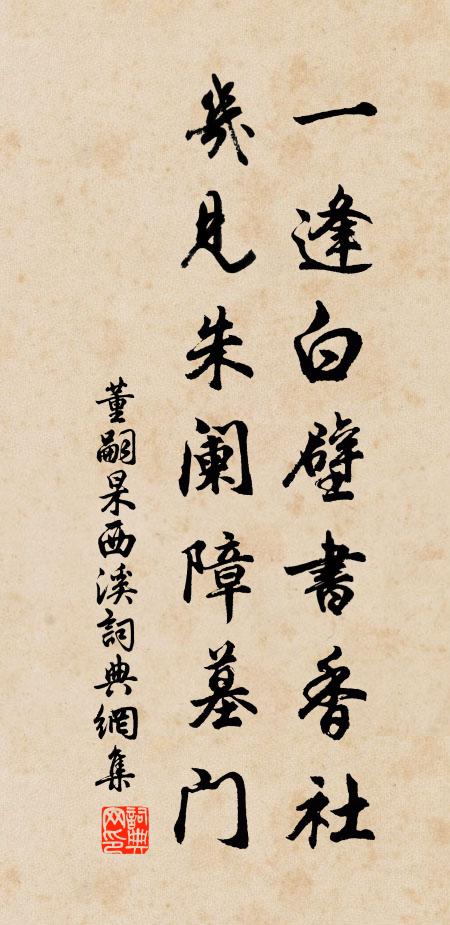 一逢白壁書香社
幾見朱阑障墓门
董嗣杲西溪詞典網集
詞典网印